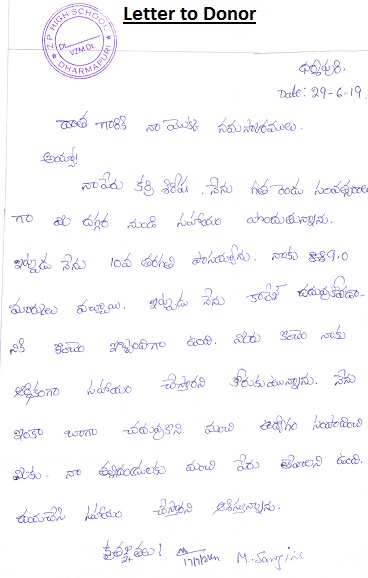 Letter to Donor
Z P HIGH SCHOOL
VZM.Dt.
DHARMAPURI
ధర్మపురి.
Date: 29-6-19.
దాత గారికి నా యొక్క నమస్కారములు.
అయ్యా!
నా పేరు కర్రి శిరీష. నేను గత రెండు సంవత్సరాలు
గా మీ దగ్గర నుండి సహాయం పొందుతున్నాను.
ఇప్పుడు నేను 10వ తరగతి పాసయ్యాను. నాకు 9.0
మార్కులు వచ్చాయి. ఇప్పుడు నేను కాలేజీ చదువుకోవడా-
నికి కొంచెం ఇబ్బందిగా ఉంది. మీరు కొంచెం నాకు
ఆర్థికంగా సహాయం చేస్తారని కోరుకుంటున్నాను. నేను
ఇంకా బాగా చదువుకొని మంచి ఉద్యోగం సంపాదించి
మీకు, నా తల్లిదండ్రులకు మంచి పేరు తేవాలని ఉంది.
దయచేసి సహాయం చేస్తారని ఆశిస్తున్నాను.
కృతజ్ఞతలు!